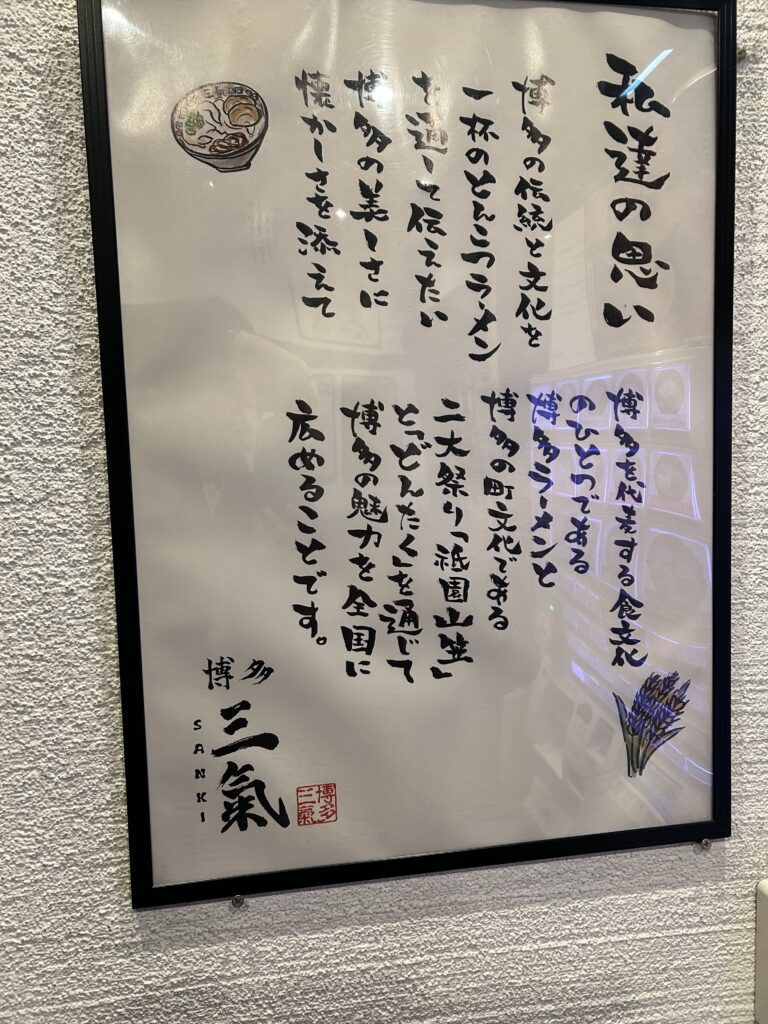 私達の思い
博多の伝統と文化を
一杯のとんこつラーメン
を通して伝えたい
博多の美しさに
懐かしさを添えて
博多を代表する食文化
のひとつである
博多ラーメンと
博多の町文化である
二大祭り「祇園山笠」
と「どんたく」を通じて
博多の魅力を全国に
広めることです。
博多
三氣
SANKI
博多
三氣